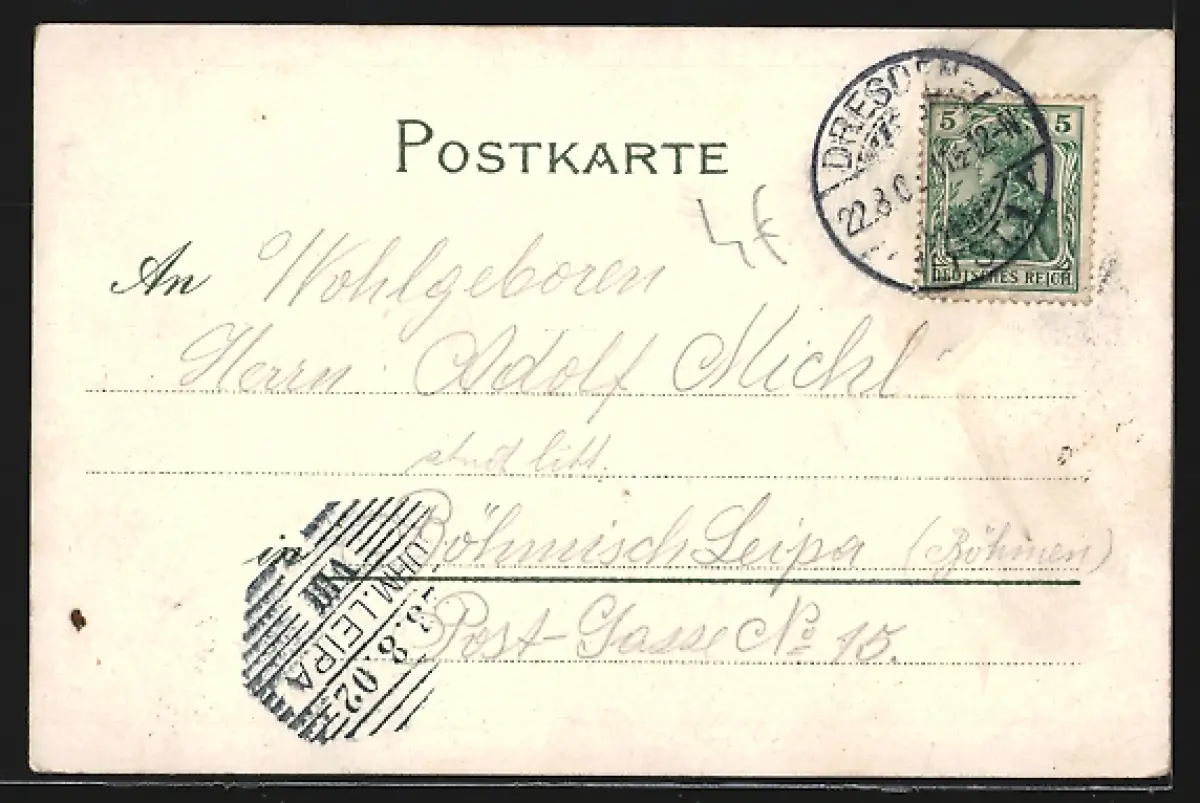 POSTKARTE
DRESDEN
22.8.0 12-1N
5 5
DEUTSCHES REICH
An Wohlgeboren
Herrn Adolf Michl
in Böhmisch Leipa (Böhmen)
Post-Gasse No 15.
BÖHM. LEIPA
8.02
VIII